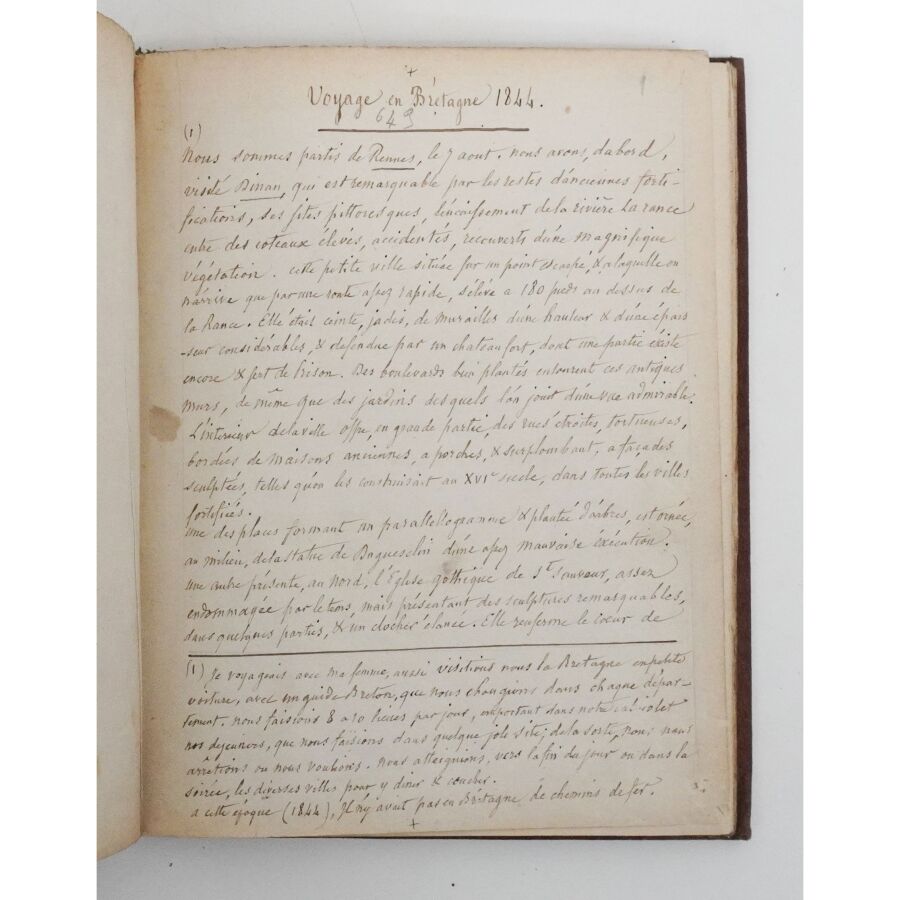 Voyage en Bretagne 1844.
649
1
(1)
Nous sommes partis de Rennes, le 7 aout. nous avons, dabord,
visité Dinan, qui est remarquable par les restes d'anciennes forti-
fications, ses sites pittoresques, l'encaissement de la rivière La rance
entre des coteaux élevés, accidentés, recouverts d'une magnifique
végétation. cette petite ville située sur un point escarpé, & a laquelle on
n'arrive que par une route assez rapide, s'élève a 180 pieds au dessus de
la Rance. Elle était ceinte, jadis, de murailles d'une hauteur & d'une épais
-seur considérables, & defendue par un chateau fort, dont une partie existe
encore & sert de Prison. Des boulevards bien plantés entourent ces antiques
murs, de même que des jardins desquels l'on jouit d'une vue admirable.
L'interieur de la ville offre, en grande partie, des rues étroites, tortueuses,
bordées de maisons anciennes, a porches, & surplombant, a façades
sculptées, telles qu'on les construisait au XVIe siecle, dans toutes les villes
fortifiées.
une des places formant un parallellogramme & plantée d'arbres, est ornée,
au milieu, de la statue de Duguesclin d'une assez mauvaise exécution.
une autre présente, au nord, l'Eglise gothique de St Sauveur, assez
endommagée par le tems, mais présentant des sculptures remarquables,
dans quelques parties, & un clocher élancé. Elle renferme le coeur de
(1) Je voyageais avec ma femme, aussi visitions nous la Bretagne en petite
voiture, avec un guide Breton, que nous changions dans chaque dépar-
tement. nous faisions 8 a 10 lieues par jour, emportant dans notre cabriolet
nos dejeuners, que nous faisions dans quelque joli site; de la sorte, nous nous
arrêtions ou nous voulions. nous atteignions, vers la fin du jour ou dans la
soirée, les diverses villes pour y diner & coucher.
a cette époque (1844), Il n'y avait pas en Bretagne de chemins de fer.